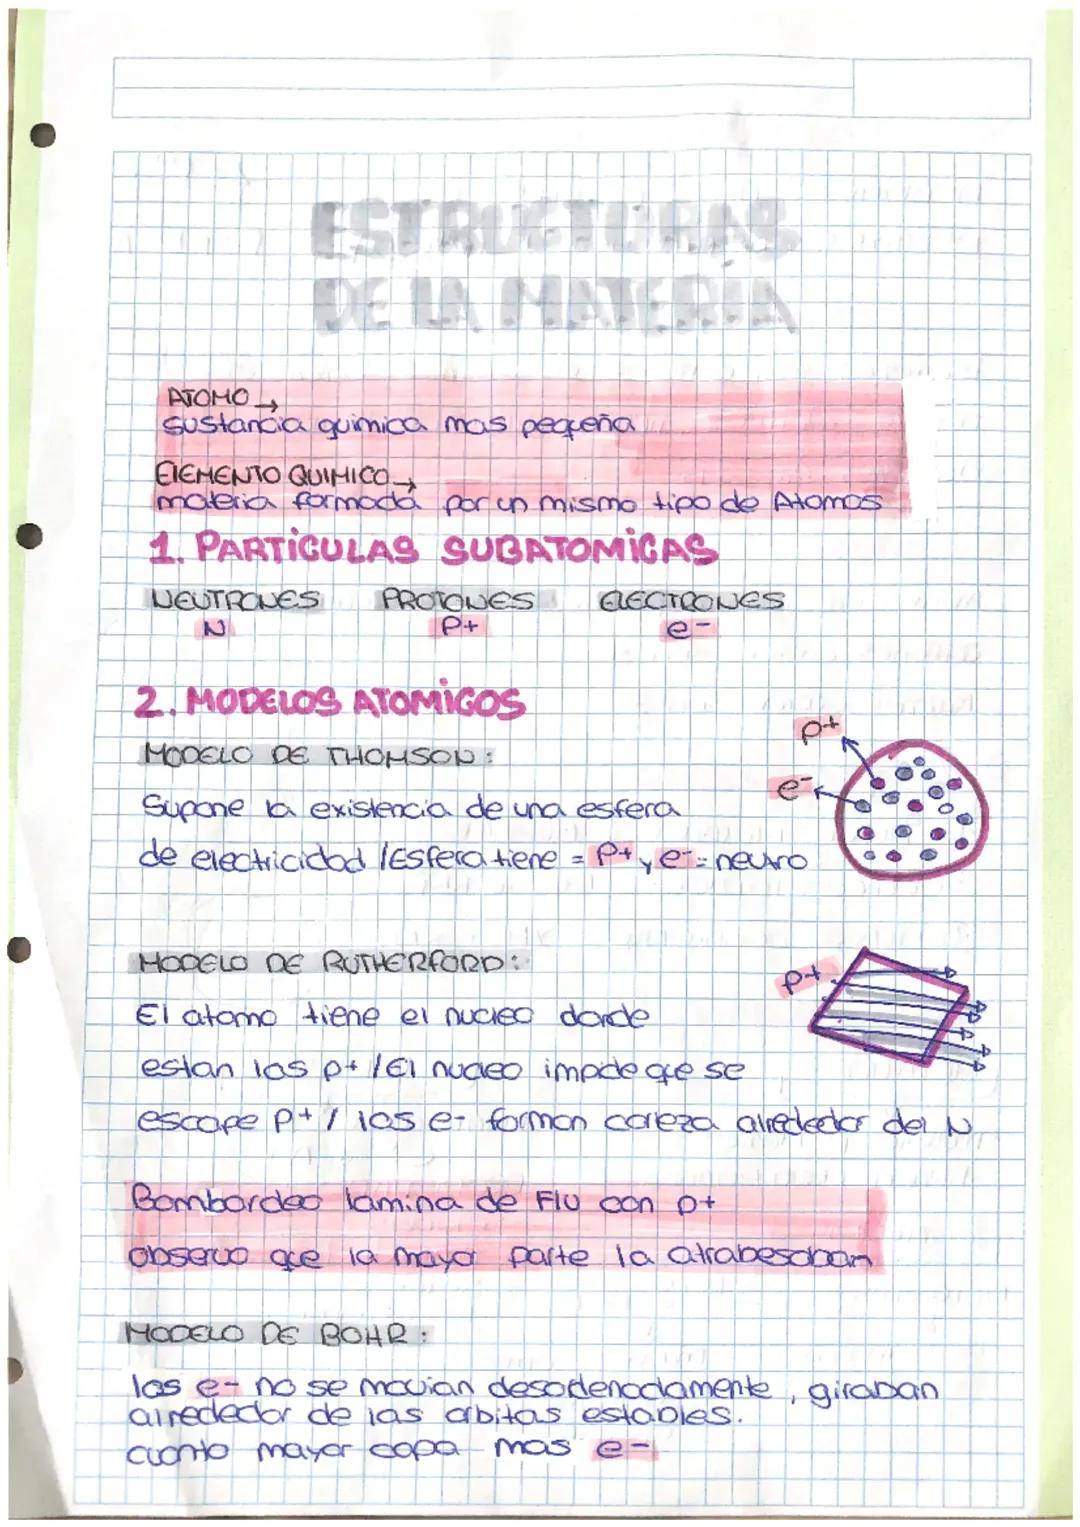 ESTRUCTURAS
DE LA MATERIA
ATOMO →
sustancia quimica mas pequeña
ElEMENTO QUIMICO →
materia formada por un mismo tipo de Atomos
1. PARTICULAS SUBATOMICAS
NEUTRONES PROTONES ELECTRONES
N P+ e-
2. MODELOS ATOMICOS
MODELO DE THOMSON:
Supone la existencia de una esfera
de electricidad / Esfera tiene = P+ y e- = neutro
p+
e-
MODELO DE RUTHERFORD:
El atomo tiene el nucleo donde
estan los p+ / El nucleo impide que se
escape p+ / los e- forman coreza alrededor del N
p+
Bombardeo lamina de Flu con p+
observo que la mayor parte la atrabesaban
MODELO DE BOHR:
los e- no se movian desordenadamente, giraban
alrededor de las orbitas estables.
cuanto mayor capa mas e-